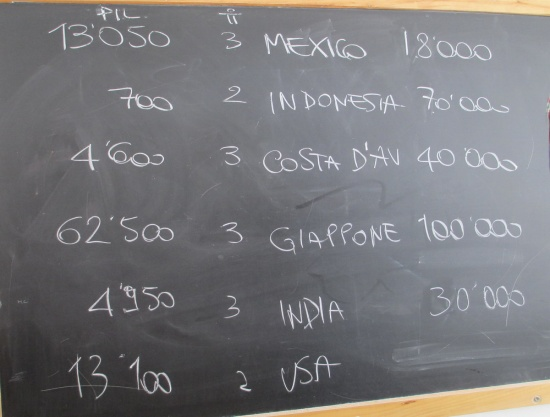 PIL
13'050 3 MEXICO 18'000
700 2 INDONESIA 70'000
4'600 3 COSTA D'AV 40'000
62'500 3 GIAPPONE 100'000
4'950 3 INDIA 30'000
13'100 2 USA